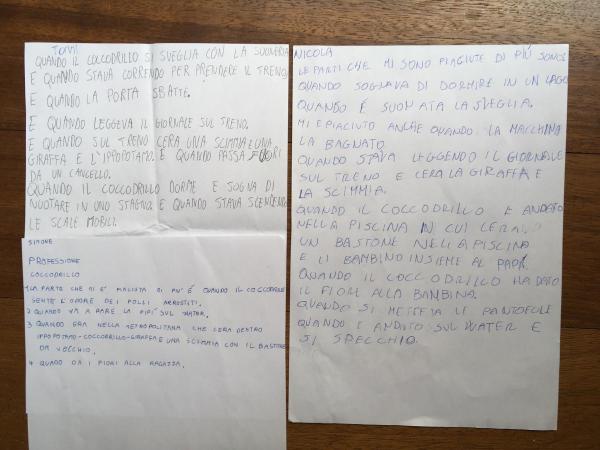 TOMMI
QUANDO IL COCCODRILLO SI SVEGLIA CON LA SUONERIA
E QUANDO STAVA CORRENDO PER PRENDERE IL TRENO.
E QUANDO LA PORTA SBATTE.
E QUANDO LEGGEVA IL GIORNALE SUL TRENO.
E QUANDO SUL TRENO C'ERA UNA SCIMMIE UNA
GIRAFFA E L'IPPOPOTAMO. E QUANDO PASSA FUORI
DA UN CANCELLO.
QUANDO IL COCCODRILLO DORME E SOGNA DI
NUOTARE IN UNO STAGNO. E QUANDO STAVA SCENDENDO
LE SCALE MOBILI.
SIMONE
PROFESSIONE
COCCODRILLO
1 LA PARTE CHE MI È PIACIUTA DI PIÙ È QUANDO IL COCCODRILLO
SENTE L'ODORE DEI POLLI ARROSTITI.
2 QUANDO VA A FARE LA PIPÌ SUL WATER.
3 QUANDO ERA NELLA METROPOLITANA CHE C'ERA DENTRO
IPPOPOTAMO-COCCODRILLO-GIRAFFA E UNA SCIMMIA CON IL BASTONE
DA VECCHIO.
4 QUADO DA I FIORI ALLA RAGAZZA.
NICOLA
LE PARTI CHE MI SONO PIACIUTE DI PIÙ SONO:
QUANDO SOGNAVA DI DORMIRE IN UN LAGO
QUANDO È SUONATA LA SVEGLIA.
MI È PIACIUTO ANCHE QUANDO LA MACCHINA
LA BAGNATO.
QUANDO STAVA LEGGENDO IL GIORNALE
SUL TRENO E C'ERA LA GIRAFFA E
LA SCIMMIA.
QUANDO IL COCCODRILLO E ANDATO
NELLA PISCINA IN CUI C'ERA
UN BASTONE NELLA PISCINA
E IL BAMBINO INSIEME AL PAPÀ.
QUANDO IL COCCODRILLO HA DATO
IL FIORE ALLA BAMBINA.
QUANDO SI METTEVA LE PANTOFOLE
QUANDO E ANDATO SUL WATER E
SI SPECCHIO.